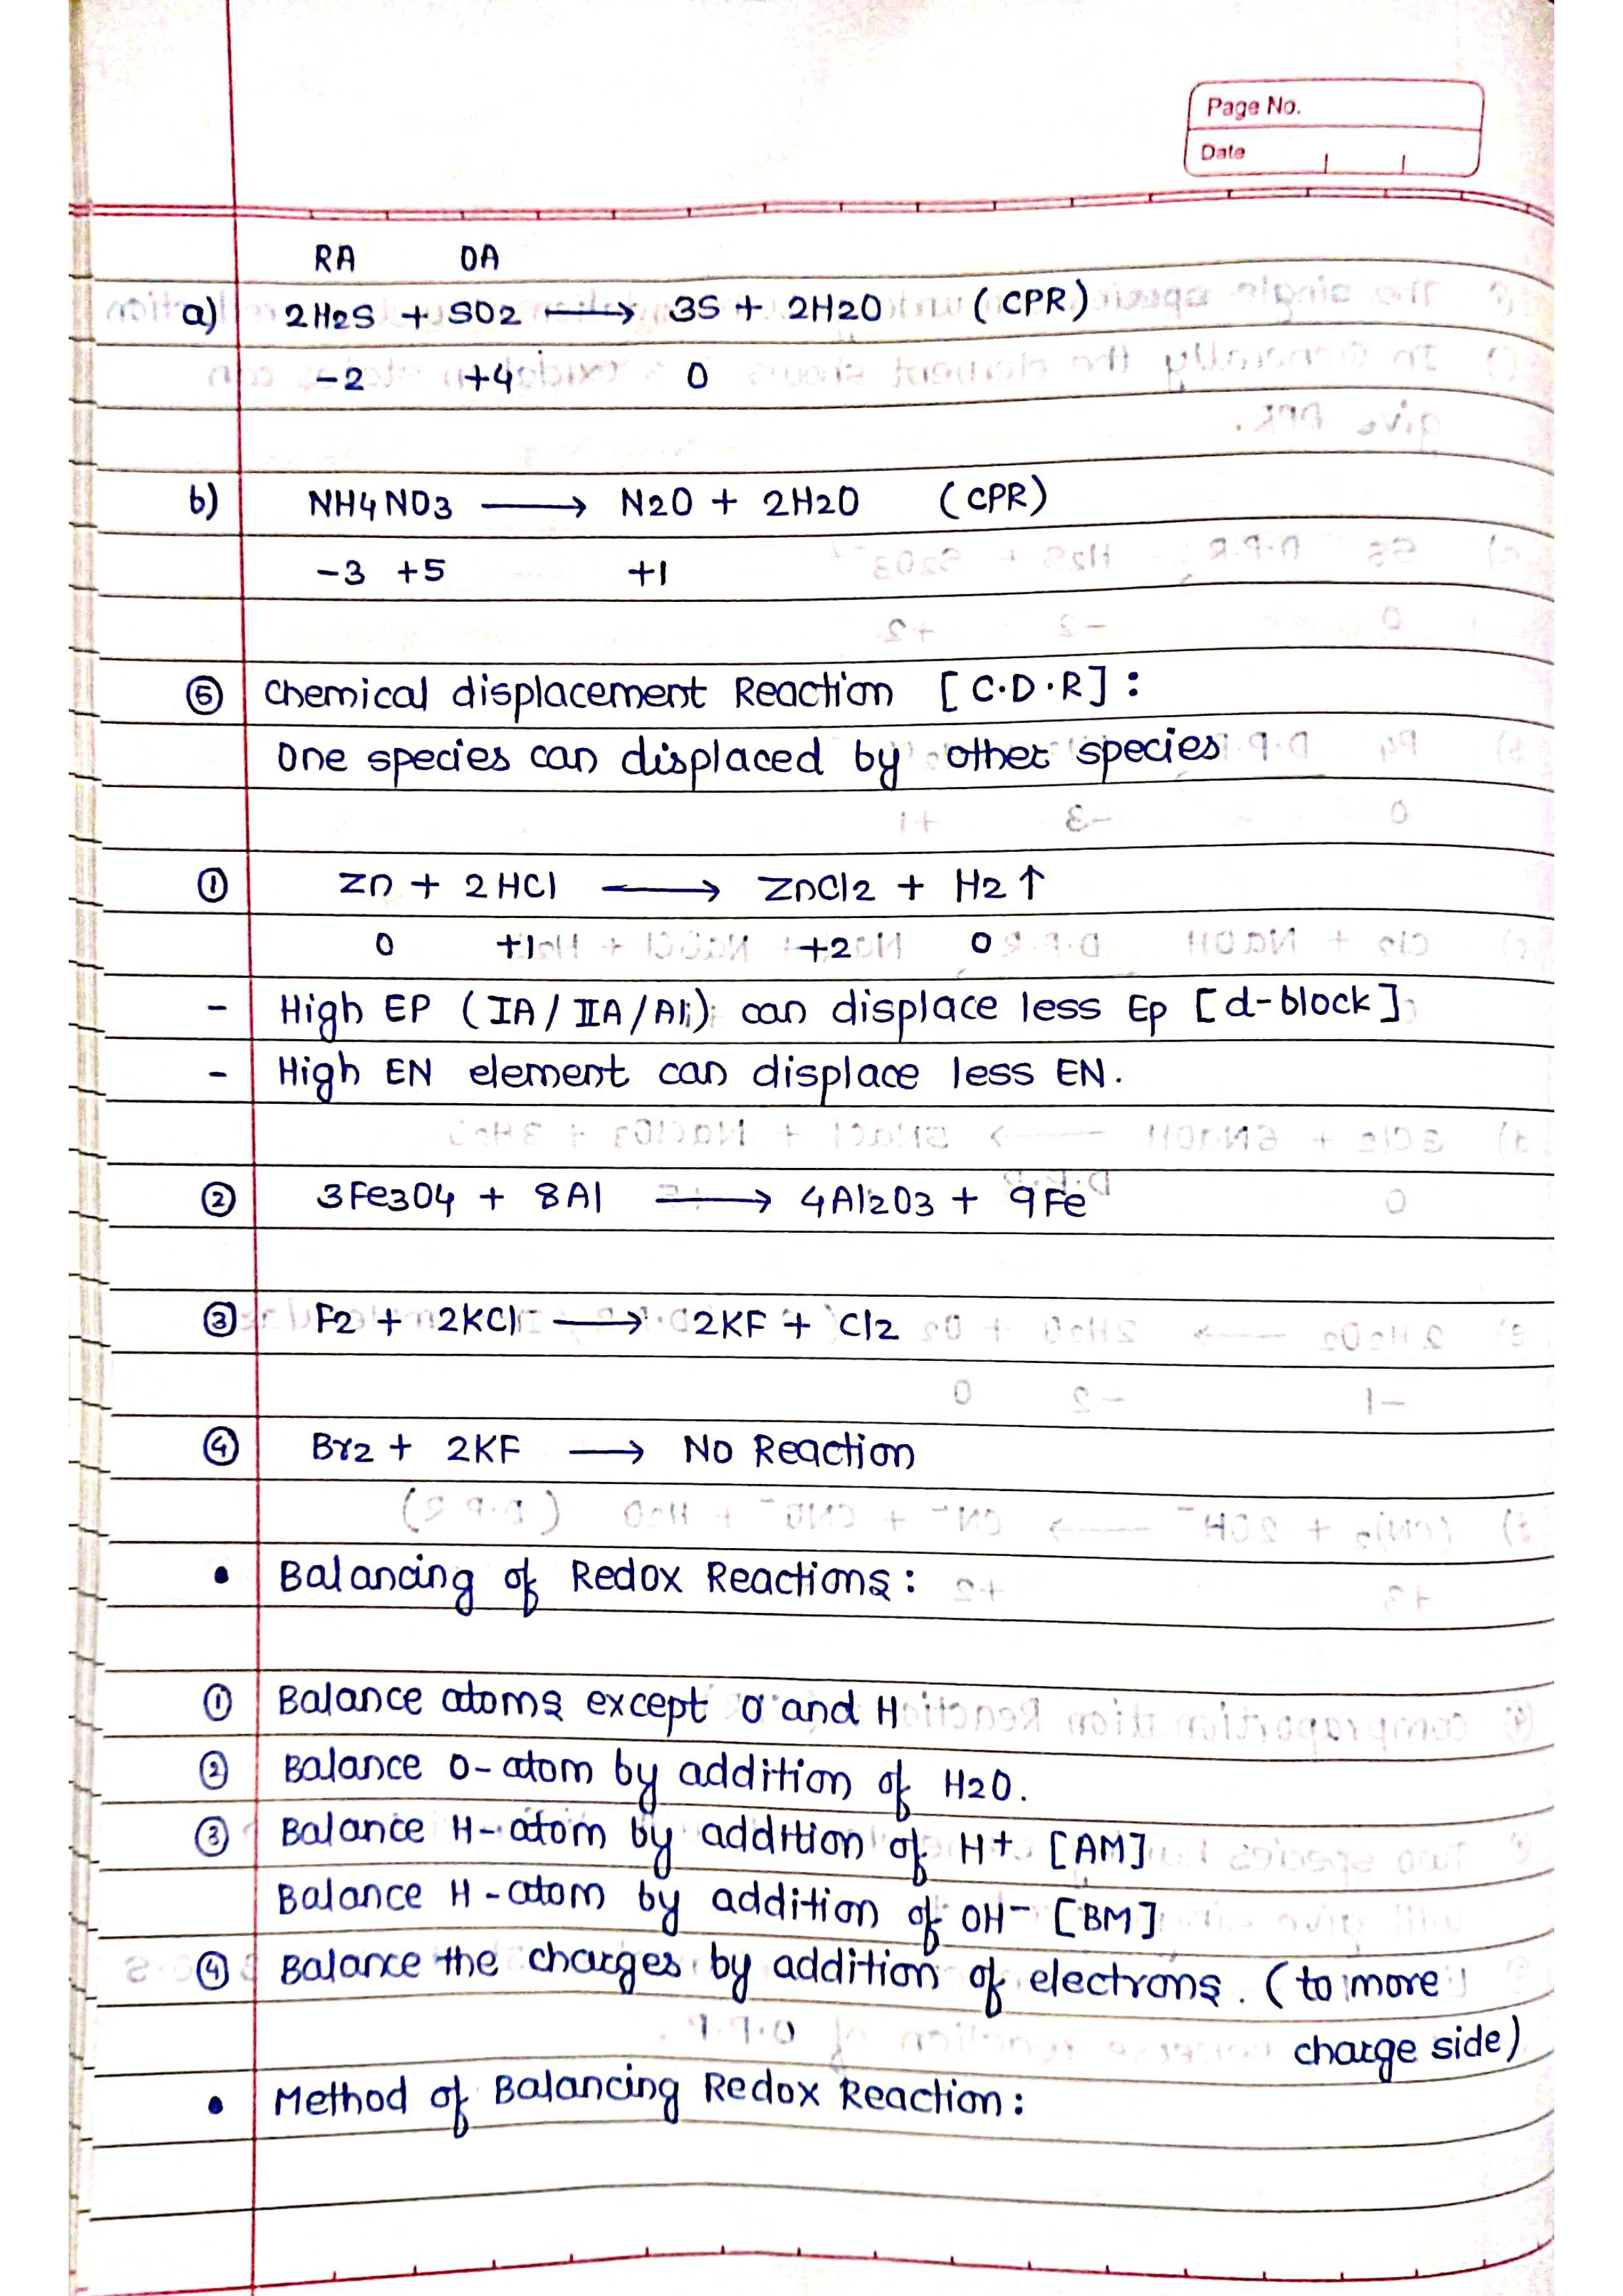 Page No.
Date
RA OA
a) 2H2S + SO2 ⟶ 3S + 2H2O (CPR)
-2 +4 0
b) NH4NO3 ⟶ N2O + 2H2O (CPR)
-3 +5 +1
⑤ Chemical displacement Reaction [C.D.R]:
One species can displaced by other species
① Zn + 2HCl ⟶ ZnCl2 + H2↑
0 +1 +2 0
- High EP (IA/IIA/Al) can displace less Ep [d-block]
- High EN element can displace less EN.
② 3Fe3O4 + 8Al ⟶ 4Al2O3 + 9Fe
③ F2 + 2KCl ⟶ 2KF + Cl2
④ Br2 + 2KF ⟶ No Reaction
• Balancing of Redox Reactions:
① Balance atoms except O and H
② Balance O-atom by addition of H2O.
③ Balance H-atom by addition of H+ [AM]
Balance H-atom by addition of OH- [BM]
④ Balance the charges by addition of electrons. (to more
charge side)
• Method of Balancing Redox Reaction: